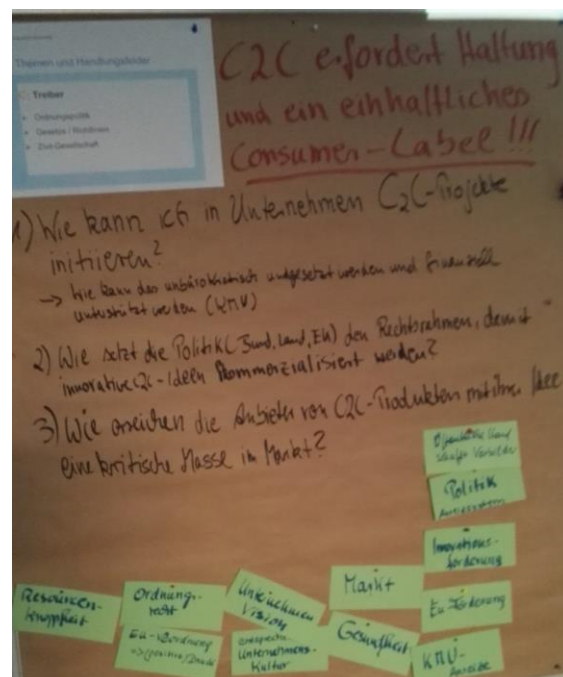 Themen und Handlungsfelder
Treiber
Ordnungspolitik
Gesetze / Richtlinien
Zivil-Gesellschaft
C2C erfordert Haltung
und ein einhaltliches
Consumer-Label!!!
1) Wie kann ich in Unternehmen C2C-Projekte
initiieren?
→ Wie kann das unbürokratisch umgesetzt werden und finanziell
unterstützt werden (KMU)
2) Wie setzt die Politik (Bund, Land, EU) den Rechtsrahmen, damit
innovative C2C-Ideen kommerzialisiert werden?
3) Wie erreichen die Anbieter von C2C-Produkten mit ihrer Idee
eine kritische Masse im Markt?
Öffentliche Hand
Vorbilder
Politik
Innovations-
förderung
EU-Förderung
KMU-
Markt
Gesundheit
Unternehmen
Vision
Unternehmens-
Kultur
Ordnungs-
recht
EU-Verordnung
Ressourcen-
knappheit